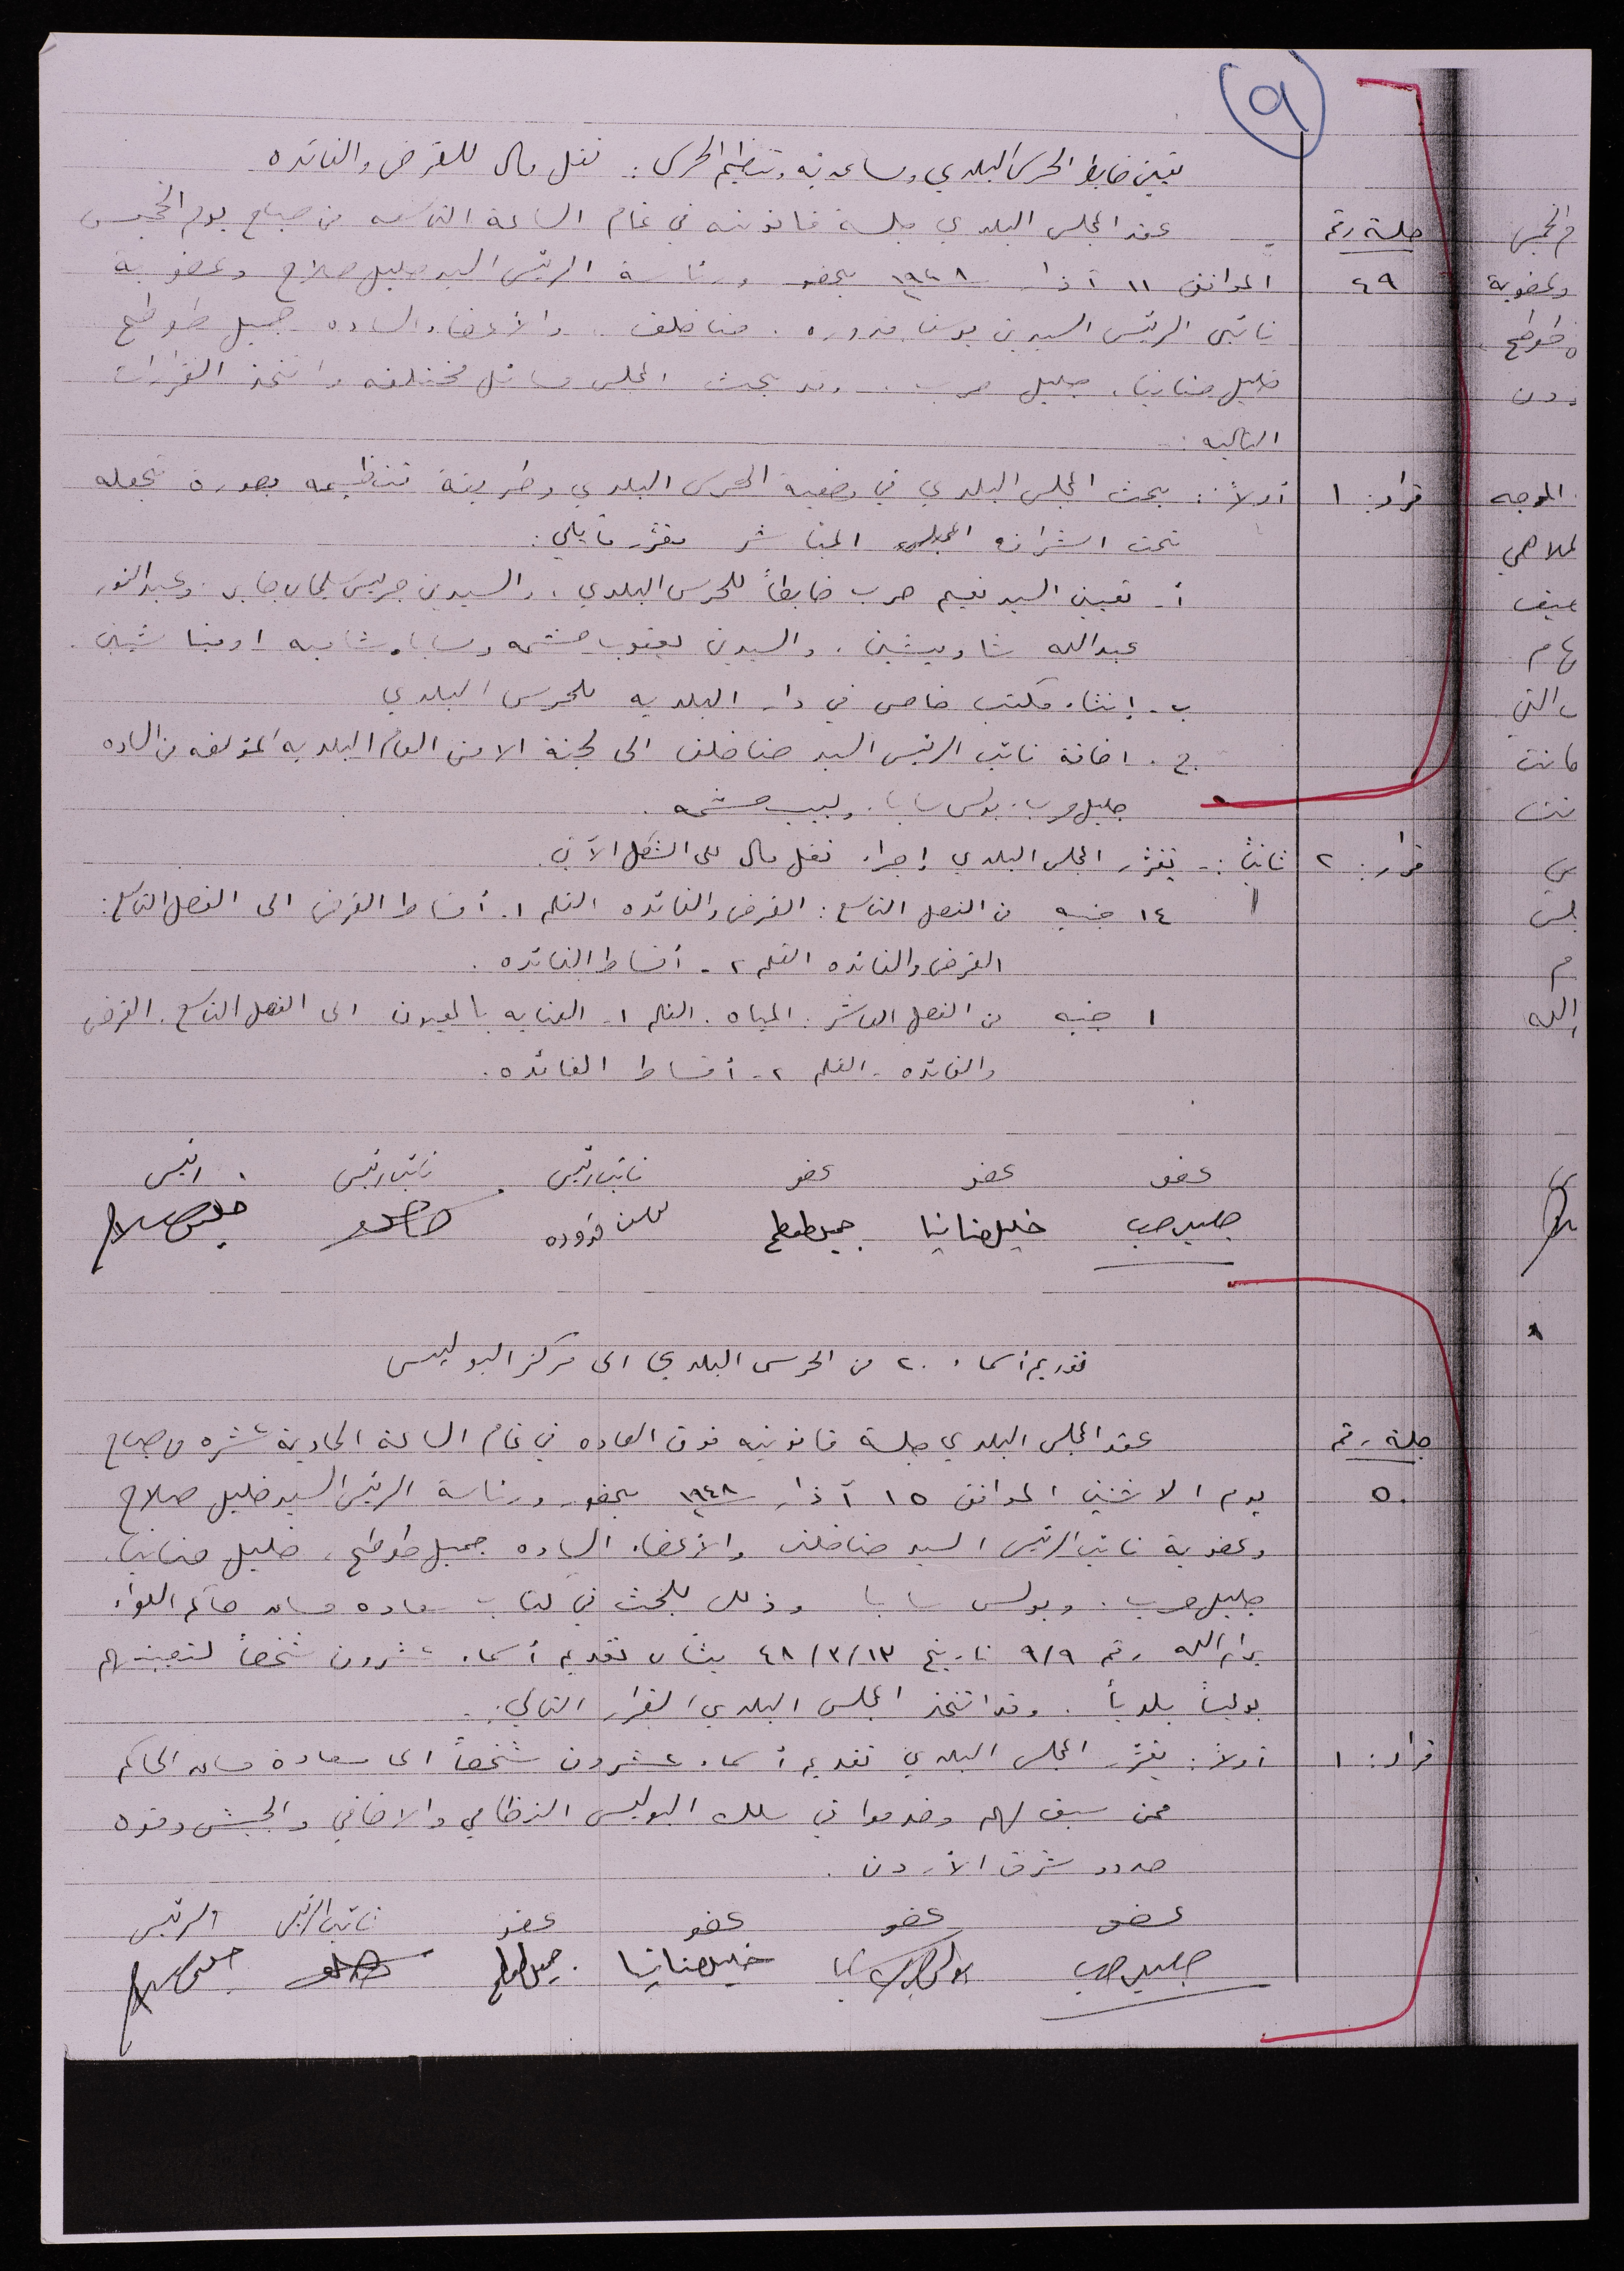 ٩
تعيين ضابط الحرس البلدي ومساعديه وتنظيم الحرس : نقل مال للقرض والفائده
جلسة رقم
٤٩
عقد المجلس البلدي جلسة قانونيه في تمام الساعة التاسعه من صباح يوم الخميس
الموافق ١١ آذار ١٩٤٨ بحضور ورئاسة الرئيس السيد خليل صلاح وعضوية
نائبي الرئيس السيدين يوسف قدوره . حنا خلف . والأعضاء الساده جميل طوطح
خليل حنانيا . جليل حرب . وقد بحث المجلس مسائل مختلفه واتخذ القرارات
التاليه :
قرار : ١ أولاً : بحث المجلس البلدي في وضعية الحرس البلدي وطريقة تنظيمه بصورة تجعله
تحت اشراف المجلس المباشر فقرر ما يلي :
أ - تعيين السيد نعيم حرب ضابطاً للحرس البلدي ، والسيدين جريس سليمان جابر وعبد النور
عبدالله شاويشين ، والسيدين يعقوب حشمه وسابا اومباشيين .
ب - إنشاء مكتب خاص في دار البلديه للحرس البلدي
ج . اضافة نائب الرئيس السيد حنا خلف الى لجنة الامن العام البلديه المؤلفه من الساده
جليل حرب . بولس سابا . ولبيب حشمه .
قرار : ٢ ثانياً : - يقرر المجلس البلدي إجراء نقل مال على الشكل الآتي .
١٤ جنيه من الفصل التاسع : القرض والفائده القلم ١ - أقساط القرض الى الفصل التاسع :
القرض والفائده القلم ٢ - أقساط الفائده .
١ جنيه من الفصل العاشر : المياه . القلم ١ - العنايه بالعيون الى الفصل التاسع . القرض
والفائده - القلم ٢ - أقساط الفائده .
عضو عضو عضو نائب رئيس نائب رئيس رئيس
جليل حرب خليل حنانيا جميل طوطح قدوره خليل صلاح
تقديم أسماء ٢٠ من الحرس البلدي الى مركز البوليس
جلسة رقم
٥٠
عقد المجلس البلدي جلسة قانونيه فوق العاده في تمام الساعة الحادية عشره من صباح
يوم الاثنين الموافق ١٥ آذار ١٩٤٨ بحضور ورئاسة الرئيس السيد خليل صلاح
وعضوية نائب الرئيس السيد حنا خلف والأعضاء الساده جميل طوطح ، خليل حنانيا .
جليل حرب . وبولس سابا وذلك للبحث في كتاب سعاده مساعد حاكم اللواء
برام الله رقم ٩/٩ تاريخ ٤٨/٣/١٣ بشأن تقديم أسماء عشرون شخصاً لتعيينهم
بوليساً بلدياً . وقد اتخذ المجلس البلدي القرار التالي .
قرار : ١ أولاً : يقرر المجلس البلدي تقديم أسماء عشرون شخصاً الى سعادة مساعد الحاكم
ممن سبق لهم وخدموا في سلك البوليس النظامي والاضافي والجيش وقوه
حدود شرق الأردن .
عضو عضو عضو عضو نائب الرئيس الرئيس
جليل حرب خليل حنانيا جميل طوطح